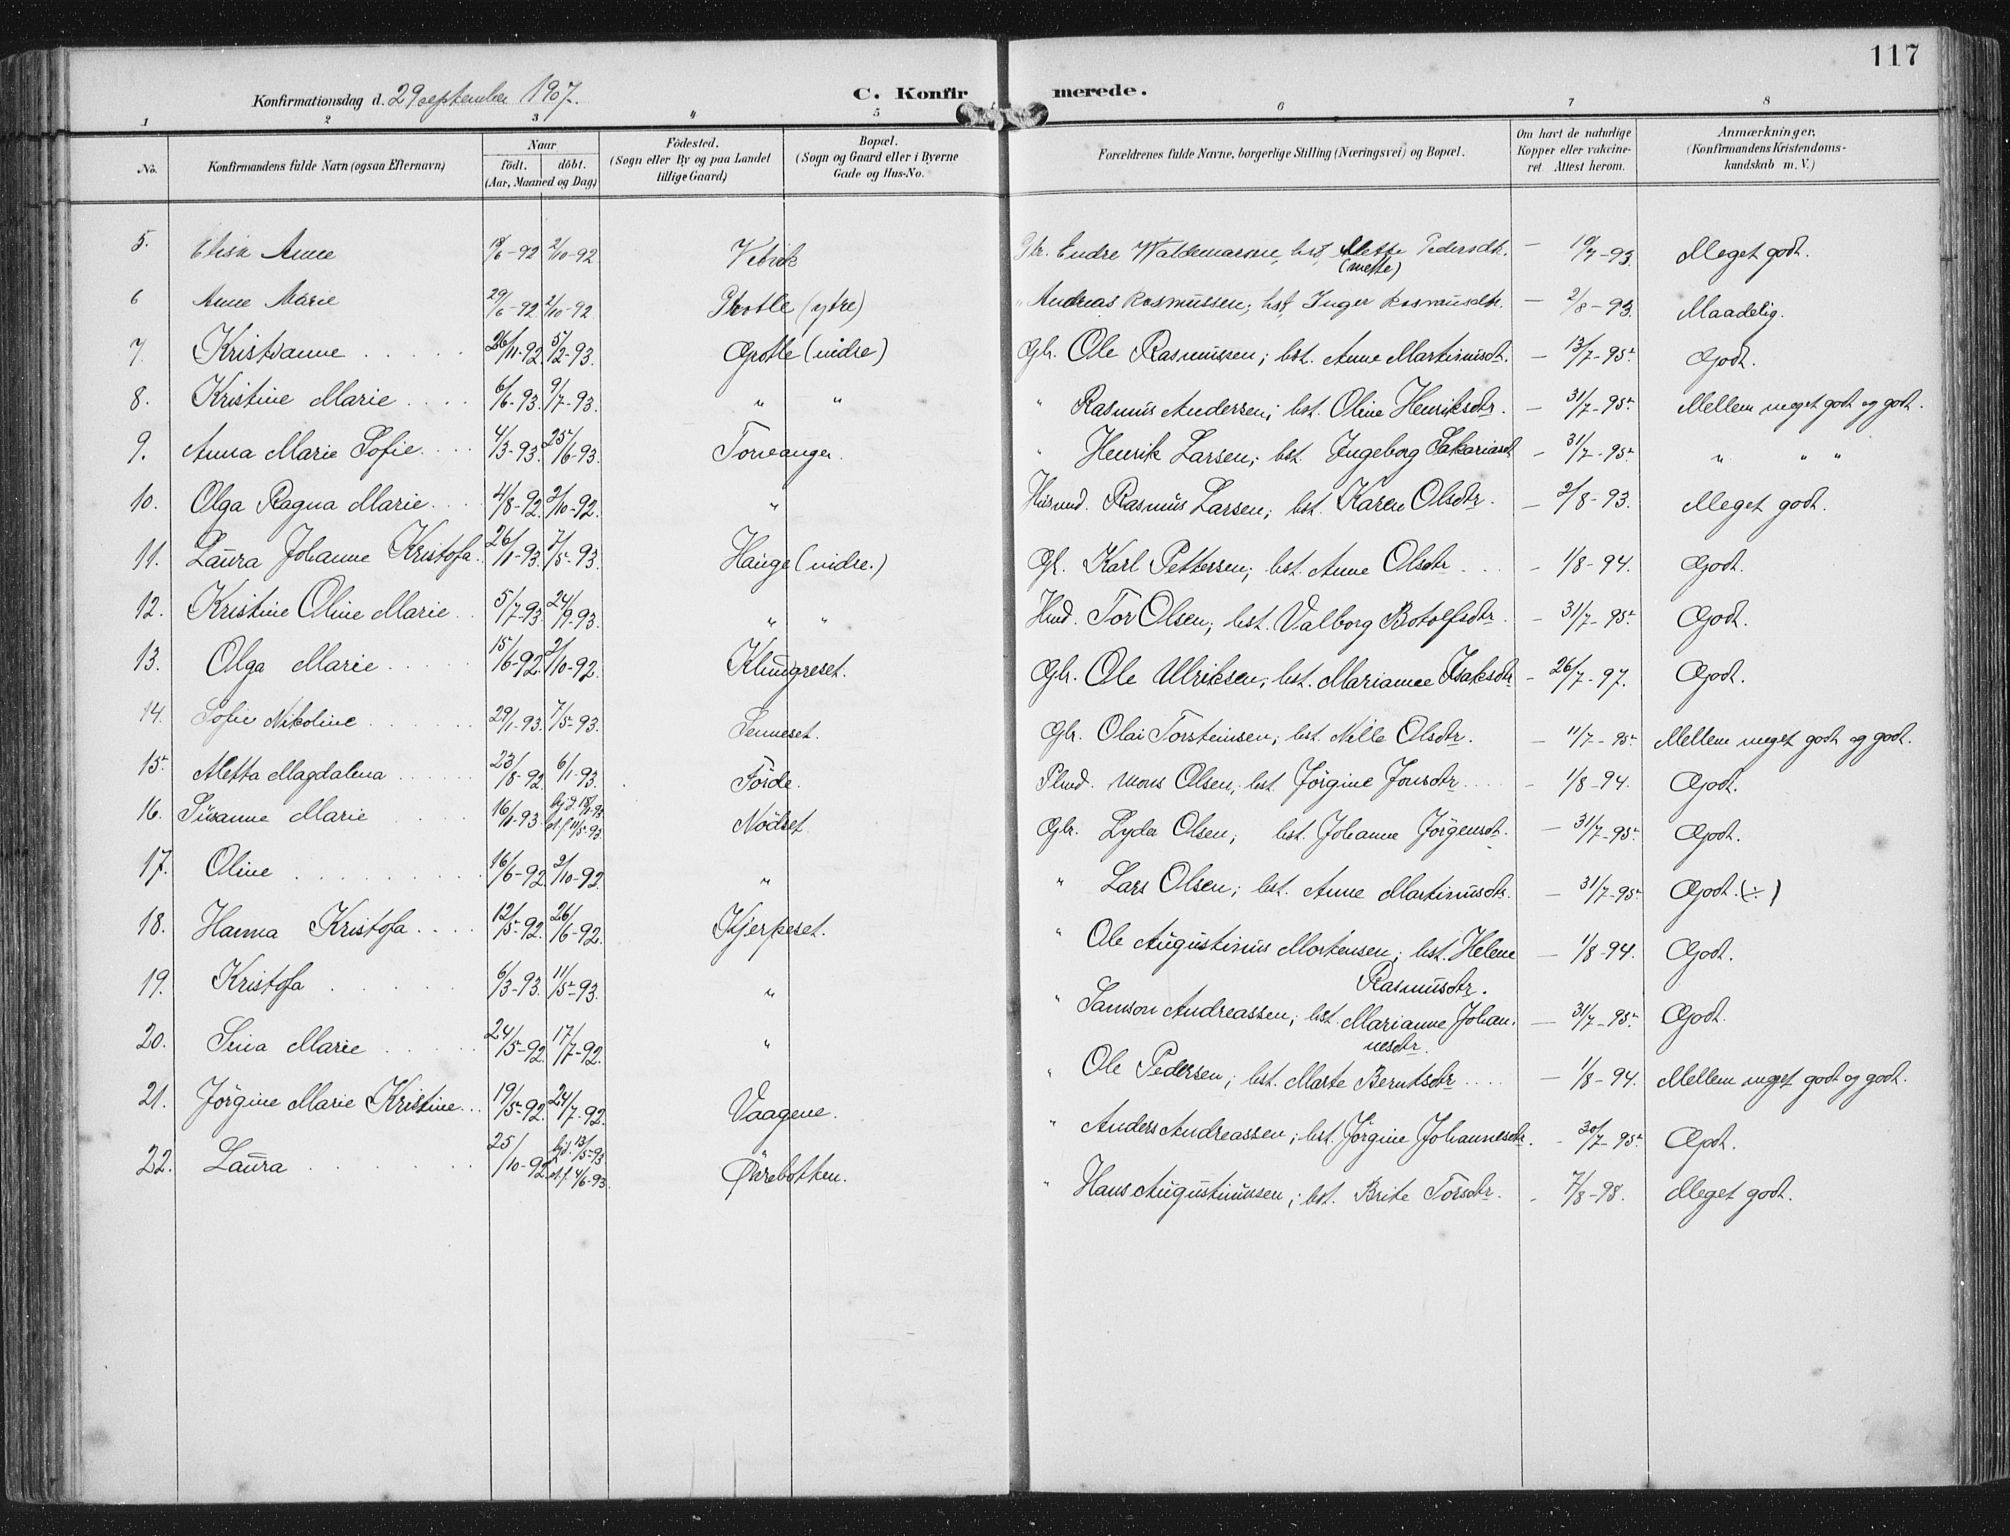 117
Konfirmationsdag d. 29 september 1907. C. Konfirmerede.
1 2 3 4 5 6 7 8
No. Konfirmandens fulde Navn (ogsaa Efternavn) Naar födt. döbt. (Aar, Maaned og Dag) Födested. (Sogn eller By og paa Landet tillige Gaard) Bopæl. (Sogn og Gaard eller i Byerne Gade og Hus-No. Forældrenes fulde Navne, borgerlige Stilling (Næringsvei) og Bopæl. Om havt de naturlige Kopper eller vakcineret. Attest herom. Anmærkninger, (Konfirmandens Kristendomskundskab m. V.)
5. Elisa Anne /6-92 2/10-92 Vebvik Endre Waldemarsen, hst. Mette Pedersdtr. (Mette) — /7-93. Meget godt.
6 Anne Marie 29/6-92 2/10-92 Grotle (ytre) " Andreas Rasmussen; hst. Inger Rasmusdtr. — 2/8-93. Maadelig.
7. Kristianne 26/11-92. 5/2-93. Grotle (indre) Gbr. Ole Rasmussen; hst. Anne Martinusdt. — 13/7-95. Godt.
8. Kristine Marie 6/6-93. 9/7-93. " " " Rasmus Andersen; hst. Oline Henriksdtr. — 31/7-95. Mellem meget godt og godt.
9. Anna Marie Sofie 4/3-93. 25/6-93. Torvanger. " Henrik Larsen; hst. Ingeborg Sakariasdt — 31/7-95. " " "
10. Olga Ragna Marie 4/8-92. 2/10-92. " Husmd. Rasmus Larsen; hst. Karen Olsdtr. — 2/8-93. Meget godt.
11. Laura Johanne Kristofa. 26/1-93. 7/5-93. Hauge (indre.) Gbr. Karl Pettersen; hst. Anne Olsdtr — 1/8-94. Godt.
12. Kristine Oline Marie 5/7-93. 24/9-93. " " Hmd. Tor Olsen; hst. Valborg Botolfsdtr. — 31/7-95. Godt.
13. Olga Marie 15/6-92. 2/10-92. Klungreset. Gbr. Ole Ulriksen; hst. Marianne Isaksdtr — 26/7-97. Godt.
14. Sofie Nikoline 29/1-93. 7/5-93. Senneset. Gbr. Olai Torsteinsen; hst. Nille Olsdtr. — 11/7-95. Mellem meget godt og godt.
15. Aletta Magdalena 23/8-92. 6/1-93. Förde. Plmd. Mons Olsen; hst. Jörgine Jonsdtr — 1/8-94. Godt.
16. Susanne Marie 16/1-93. hjd. 18/1-93 st.f. 11/5-93. Nödset Gbr. Lyder Olsen; hst. Johanne Jörgensdt. — 31/7-95. Godt.
17. Oline 16/6-92. 2/10-92. " " Lars Olsen; hst. Anne Martinusdtr. — 31/7-95. Godt. (÷)
18. Hanna Kristofa 12/5-92. 26/6-92. Kjerpeset. " Ole Augustinus Mortensen; hst. Helene Rasmusdtr. — 1/8-94. Godt.
19. Kristofa 6/3-93. 11/5-93. " " Samson Andreassen; hst. Marianne Johannesdtr. — 31/7-95. Godt.
20. Sina Marie 24/5-92. 17/7-92. " " Ole Pedersen; hst. Marte Berntsdtr — 1/8-94. Mellem meget godt og godt.
21. Jörgine Marie Kristine 19/5-92. 24/7-92. Vaagene. " Anders Andreassen; hst. Jörgine Johannesdtr. — 30/7-95. Godt.
22. Laura 25/10-92. hjd. 13/5-93 st.f. 4/6-93. Örebotten. " Hans Augustinussen; hst. Brite Torsdtr. — 7/8-98. Meget godt.